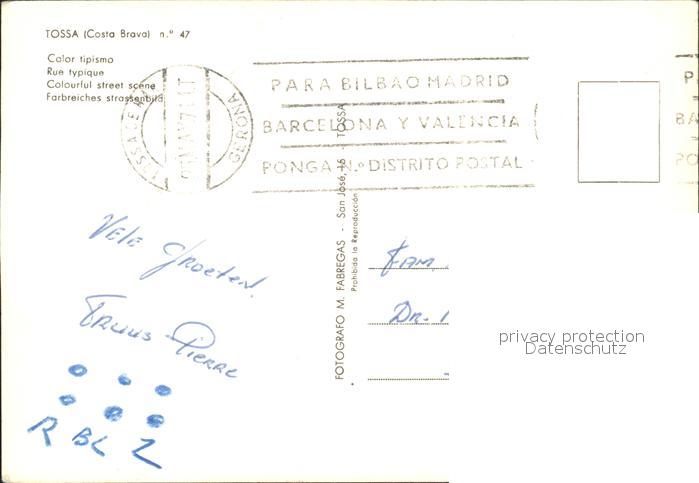 TOSSA (Costa Brava) n.º 47
Color tipismo
Rue typique
Colourful street scene
Farbreiches strassenbild
TOSSA DE MAR
GERONA
PARA BILBAO MADRID
BARCELONA Y VALENCIA
PONGA N.º DISTRITO POSTAL
P
BA
PO
FOTOGRAFO M. FABREGAS - San José, 16 - TOSSA
Prohibida la Reproducción
Vele Groeten.
Truus - Pierre
R BL Z
Fam.
Dr.
privacy protection
Datenschutz